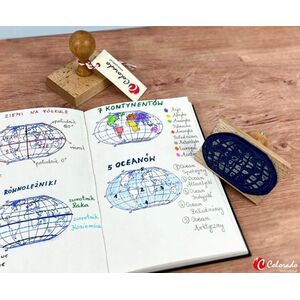 Colorado
ZIEMI NA PÓŁKULE
południk
180°
południk 0°
RÓWNOLEŻNIKI
zwrotnik
Raka
zwrotnik
Koziorożca
7 KONTYNENTÓW
Azja
Afryka
Ameryka
Północna
Ameryka
Południowa
Antarktyda
Europa
Australia
5 OCEANÓW
1 2 3 4 5
① Ocean
Spokojny
② Ocean
Atlantycki
③ Ocean
Indyjski
④ Ocean
Południowy
⑤ Ocean
Arktyczny
Colorado